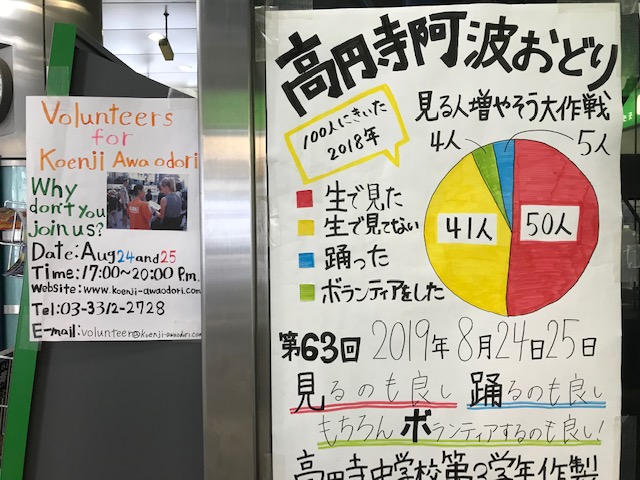 Volunteers
for
Koenji Awa odori
Why
don't you
join us?
Date:Aug24and25
Time:17:00~20:00 P.m.
Website:www.koenji-awaodori.com
Tel:03-3312-2728
E-mail:volunteer@koenji-awaodori.com
高円寺阿波おどり
見る人増やそう大作戦
100人にきいた
2018年
4人
5人
41人
50人
生で見た
生で見てない
踊った
ボランティアをした
第63回 2019年8月24日25日
見るのも良し 踊るのも良し
もちろんボランティアするのも良し!
高円寺中学校第3学年作製